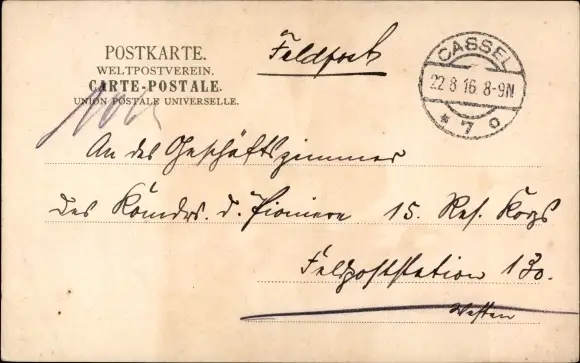 POSTKARTE.
WELTPOSTVEREIN.
CARTE-POSTALE.
UNION POSTALE UNIVERSELLE.
Feldpost
CASSEL
22 8 16 8-9N
* 7 o
An das Geschäftszimmer
des Komdrs. d. Pioniere 15. Res. Korps
Feldpoststation 130.
Westen